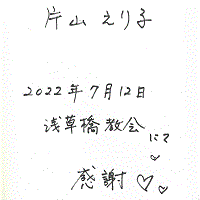 片山 えり子
2022年7月12日
浅草橋教会
にて
感謝♡♡